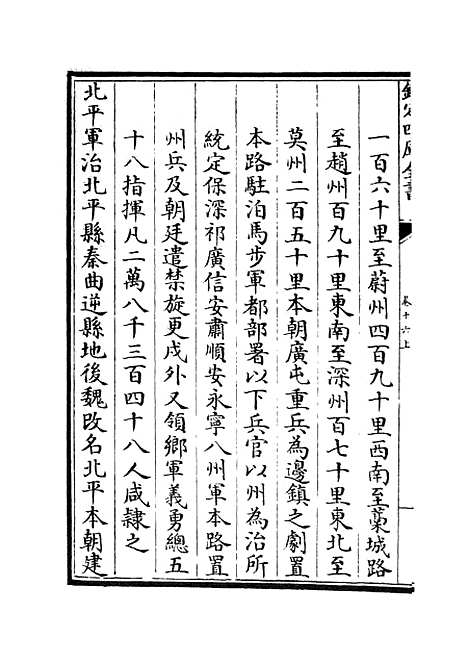 欽定四庫全書
卷十六上
一百六十里至蔚州四百九十里西南至藁城路
至趙州百九十里東南至深州百七十里東北至
莫州二百五十里本朝廣屯重兵為邊鎮之劇置
本路駐泊馬步軍都部署以下兵官以州為治所
統定保深祁廣信安肅順安永寧八州軍本路置
州兵及朝廷遣禁旅更戍外又領鄉軍義勇總五
十八指揮凡二萬八千三百四十八人咸隸之
北平軍治北平縣秦曲逆縣地後魏改名北平本朝建